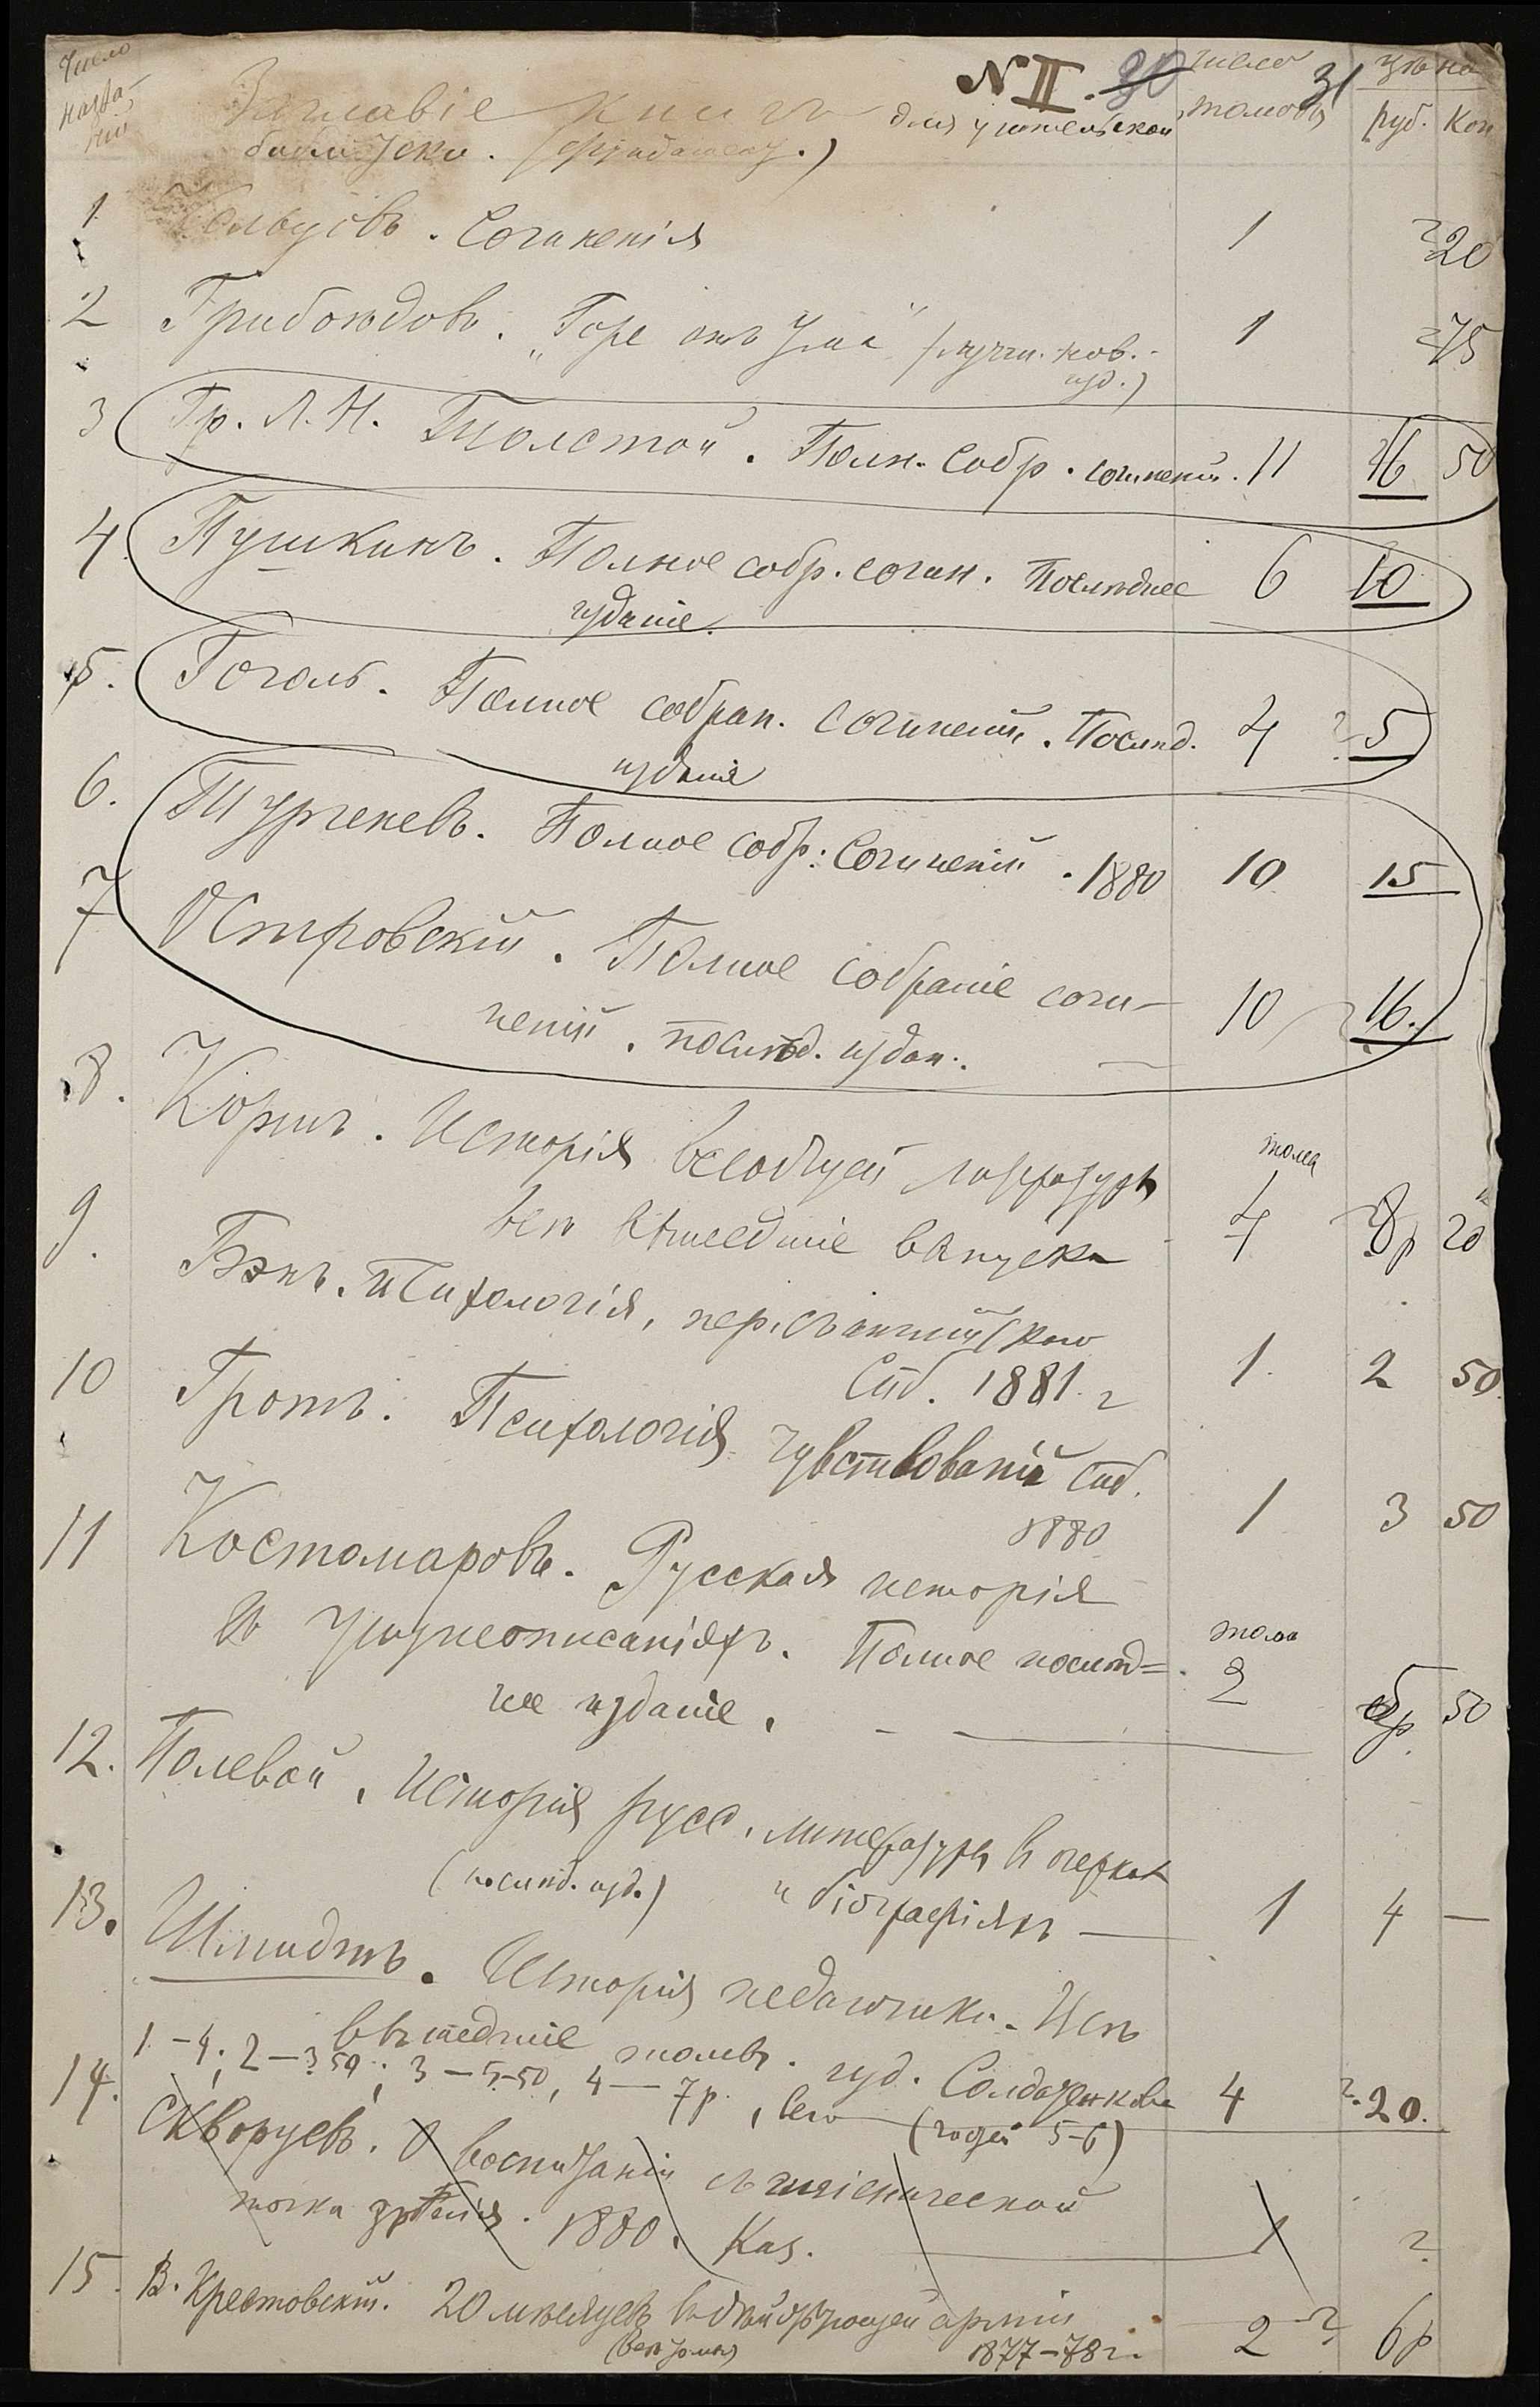 Число назва-ній
N II. 30 31
Заглавіе книгъ для учительской
библіотеки.
число томовъ
цѣна
руб. Коп
1 Кольцовъ. Сочиненія 1 ? 20
2 Грибоѣдовъ. „Горе отъ Ума“ (лучш. нов. 1 ? 75
изд.)
3 Гр. Л. Н. Толстой. Полн. Собр. сочиненій. 11 16 50
4. Пушкинъ. Полное собр. сочин. Послѣднее 6 10
изданіе.
5. Гоголь. Полное собран. сочиненій. Послѣд. 4 ? 5
изданіе
6. Тургеневъ. Полное собр. Сочиненій. 1880 10 15
7 Островскій. Полное собраніе сочи- 10 ? 16.
неній. послѣд. издан.
8. Коршъ. Исторія всеобщей литературы
тома
всѣ вышедшіе выпуски 4 ? 8р 20
9. Бэнъ. Психологія, пер. съ англійскаго
Спб. 1881. г 1. 2 50
10 Гротъ. Психологія чувствованій Спб.
1880 1 3 50
11 Костомаровъ. Русская исторія
въ жизнеописаніяхъ. Полное послѣд= тома 2
нее изданіе. 50
12. Полевой. Исторія русс. литературы въ очеркахъ
(послѣд. изд.) и біографіяхъ — 1 4 —
13. Шмидтъ. Исторія педагогики. Всѣ
вышедшіе томы. изд. Солдатенкова 4 ? 20.
1 – 4; 2 – 3 50; 3 – 5-50, 4 — 7 р., все
14. Скворцовъ. О воспитаніи съ гигіенической
точки зрѣнія. 1880. Каз. 1 ?
15. В. Крестовскій. 20 мѣсяцевъ въ дѣйствующей арміи 2 ? 6р
(всѣ томы) 1877–78 г.